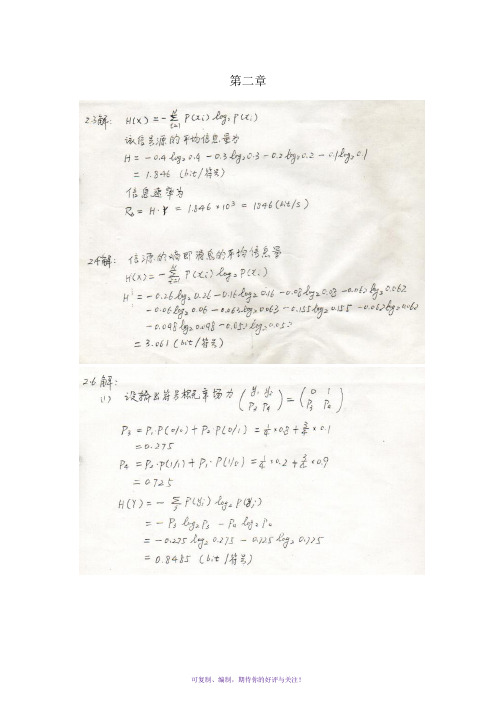 第二章
2.3解: H(X)=-∑P(xi)log₂P(xi)
该信号源的平均信息量为
H=-0.4log₂0.4-0.3log₂0.3-0.2log₂0.2-0.1log₂0.1
=1.846 (bit/符号)
信息速率为
R₀=H·r=1.846×10³=1846(bit/s)
2.4解: 信源的熵即消息的平均信息量
H(X)=-∑P(xi)log₂P(xi)
H=-0.26log₂0.26-0.16log₂0.16-0.08log₂0.08-0.062log₂0.062
-0.06log₂0.06-0.063log₂0.063-0.155log₂0.155-0.062log₂0.062
-0.048log₂0.048-0.052log₂0.052
=3.061(bit/符号)
2.6解:
(1) 设输出符号概率场为 (y₁ y₂ P₃ P₄)=(0 1 P₃ P₄)
P₃=P₁P(0/0)+P₂·P(0/1)=¼×0.8+¾×0.1
=0.275
P₄=P₂·P(1/1)+P₁·P(1/0)=¼×0.2+¾×0.9
=0.725
H(Y)=-∑P(yj)log₂P(yj)
=-P₃log₂P₃-P₄log₂P₄
=-0.275log₂0.275-0.725log₂0.725
=0.8485 (bit/符号)
可复制、编制，期待你的好评与关注！